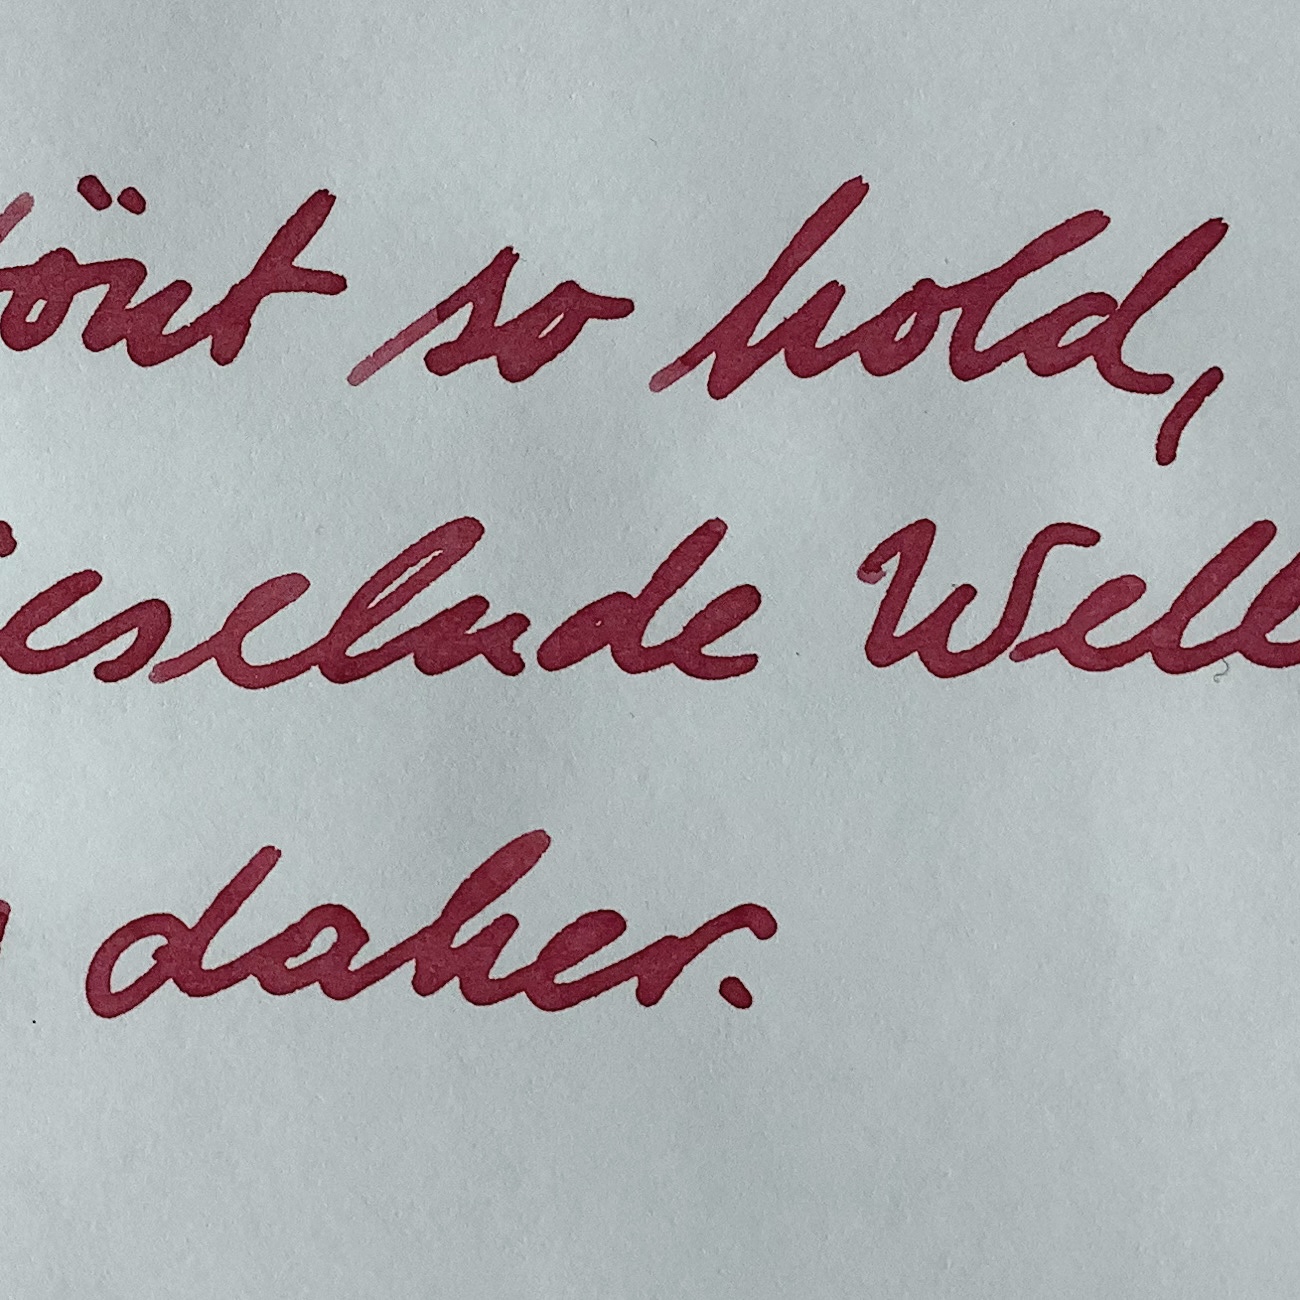 tönt so hold,
ieselnde Well
daher.